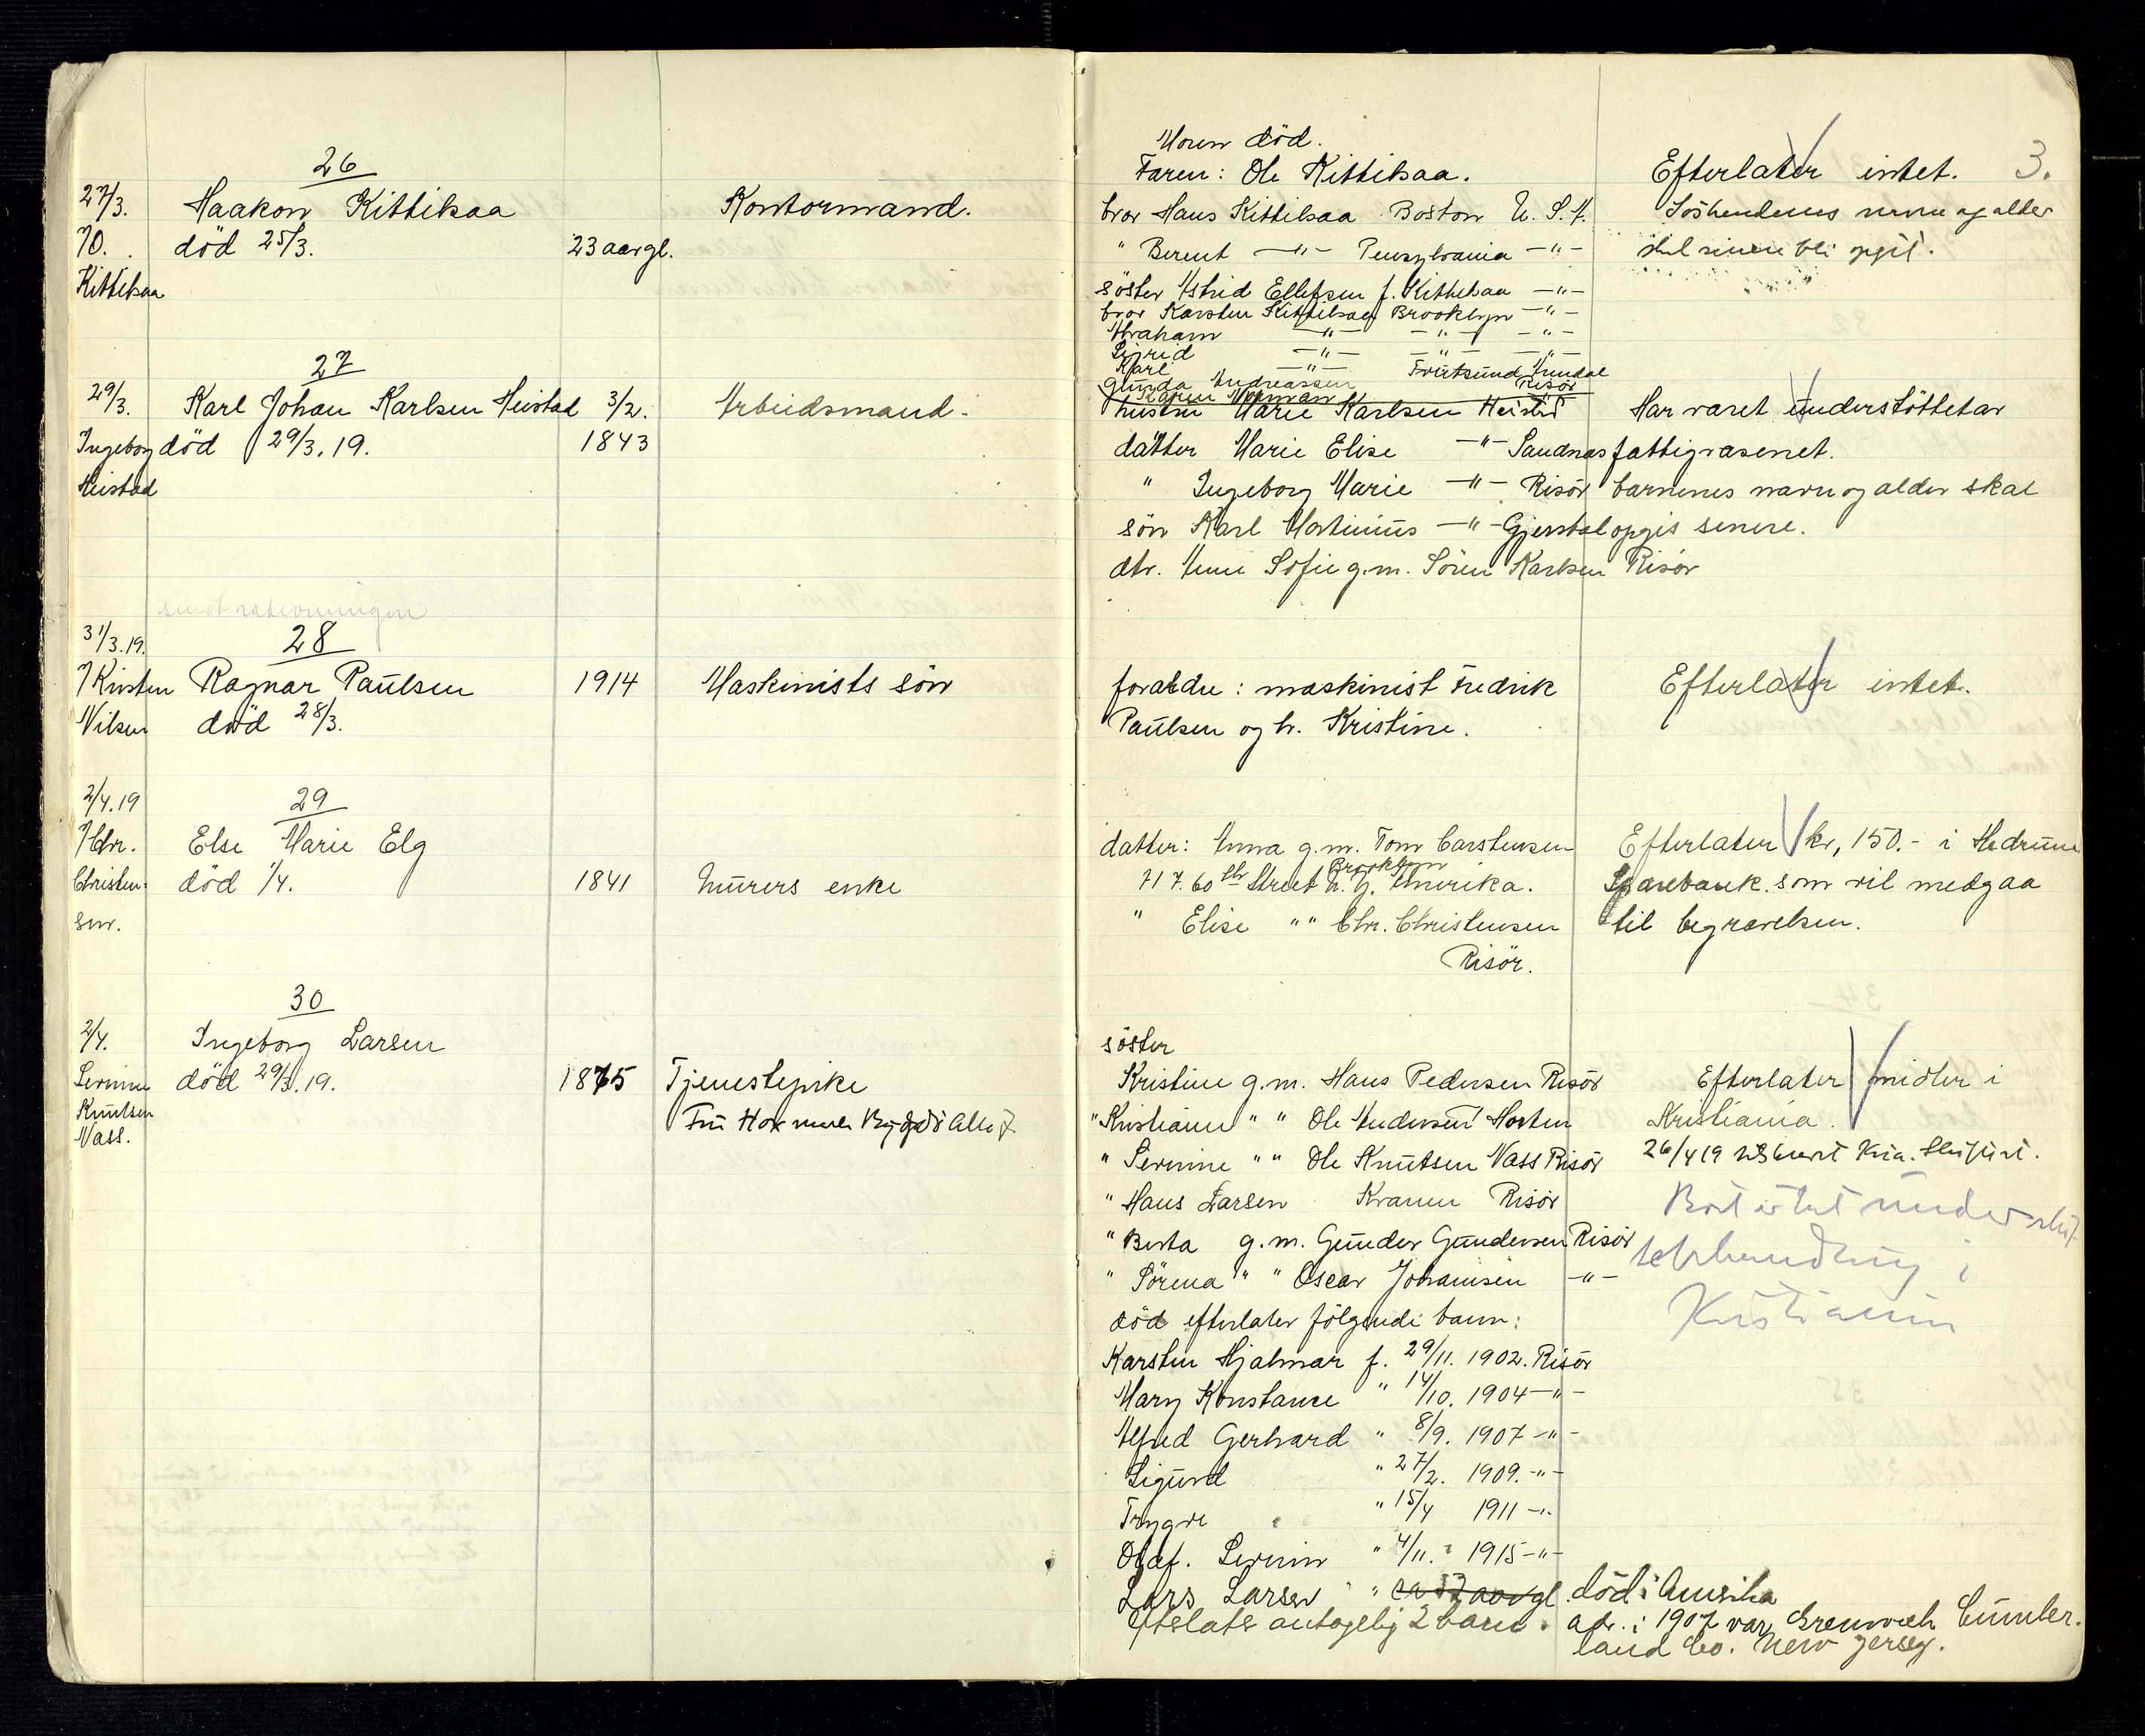 26
27/3. Haakon Kittilsaa Kontormand.
10. død 25/3. 23 aar gl.
Kittilsaa
27
29/3. Karl Johan Karlsen Heistad 3/2. Arbeidsmand.
Ingeborg død 29/3. 19. 1843
Heistad
31/3.19. 28
Kristen Ragnar Paulsen 1914 Maskinists sön
Nilsen död 28/3.
2/4.19 29
Chr. Else Marie Elg
Christen- död 1/4. 1841 Murers enke
sen.
30
2/4. Ingeborg Larsen
Serine död 29/3.19. 1875 Tjenestepike
Knutsen
Vass.
3.
Moren död.
Faren: Ole Kittilsaa. Efterlater intet.
bror Hans Kittilsaa Boston U. S. A. Söskendenes navn og alder
" Bernt —"— Pensylvania —"— skal senere bli opgit.
söster Astrid Ellefsen f. Kittilsaa —"—
bror Karsten Kittilsaa Brooklyn —"—
Abraham —"— —"— —"—
Sigrid —"— —"— —"—
Karl —"—
Gunda Andreassen Risör
hustru Marie Karlsen Heistad Har været understöttet av
datter Marie Elise —"— Sandnæs fattigvæsenet.
" Ingeborg Marie —"— Risör barnenes navn og alder skal
sön Karl Martinius —"— Gjerstad opgis senere.
dtr. Anne Sofie g.m. Sören Karlsen Risör
forældre: maskinist Fredrik Efterlater intet.
Paulsen og h. Kristine.
datter: Anna g.m. Tom Carstensen Efterlater kr. 150.- i Hedrum
Brooklyn
717. 60 th Street N. Y. Amerika. Sparebank. som vil medgaa
" Elise " " Chr. Christensen til begravelsen.
Risör.
söster
Kristine g.m. Hans Pedersen Risör Efterlater midler i
" Kristiane " " Ole Andersen Horten Kristiania.
" Serine " " Ole Knutsen Vass Risör 26/4 19
" Hans Larsen Kranen Risör
" Berta g.m. Gunder Gundersen Risör
" Sörena " " Oscar Johansen —"—
död efterlater fölgende barn:
Karsten Hjalmar f. 29/11. 1902. Risör
Mary Konstance " 14/10. 1904 —"—
Alfred Gerhard " 8/9. 1907 —"—
Sigurd " 27/2. 1909. —"—
Trygve " 15/4 1911 —"—
Olaf. Serin " 4/11. 1915 —"—
Lars Larsen " ca 52 aar gl. död i Amerika
Efterlater antagelig 2 barn. adr. i 1907 var Grenwich Cumber-
land Co. New Jersey.